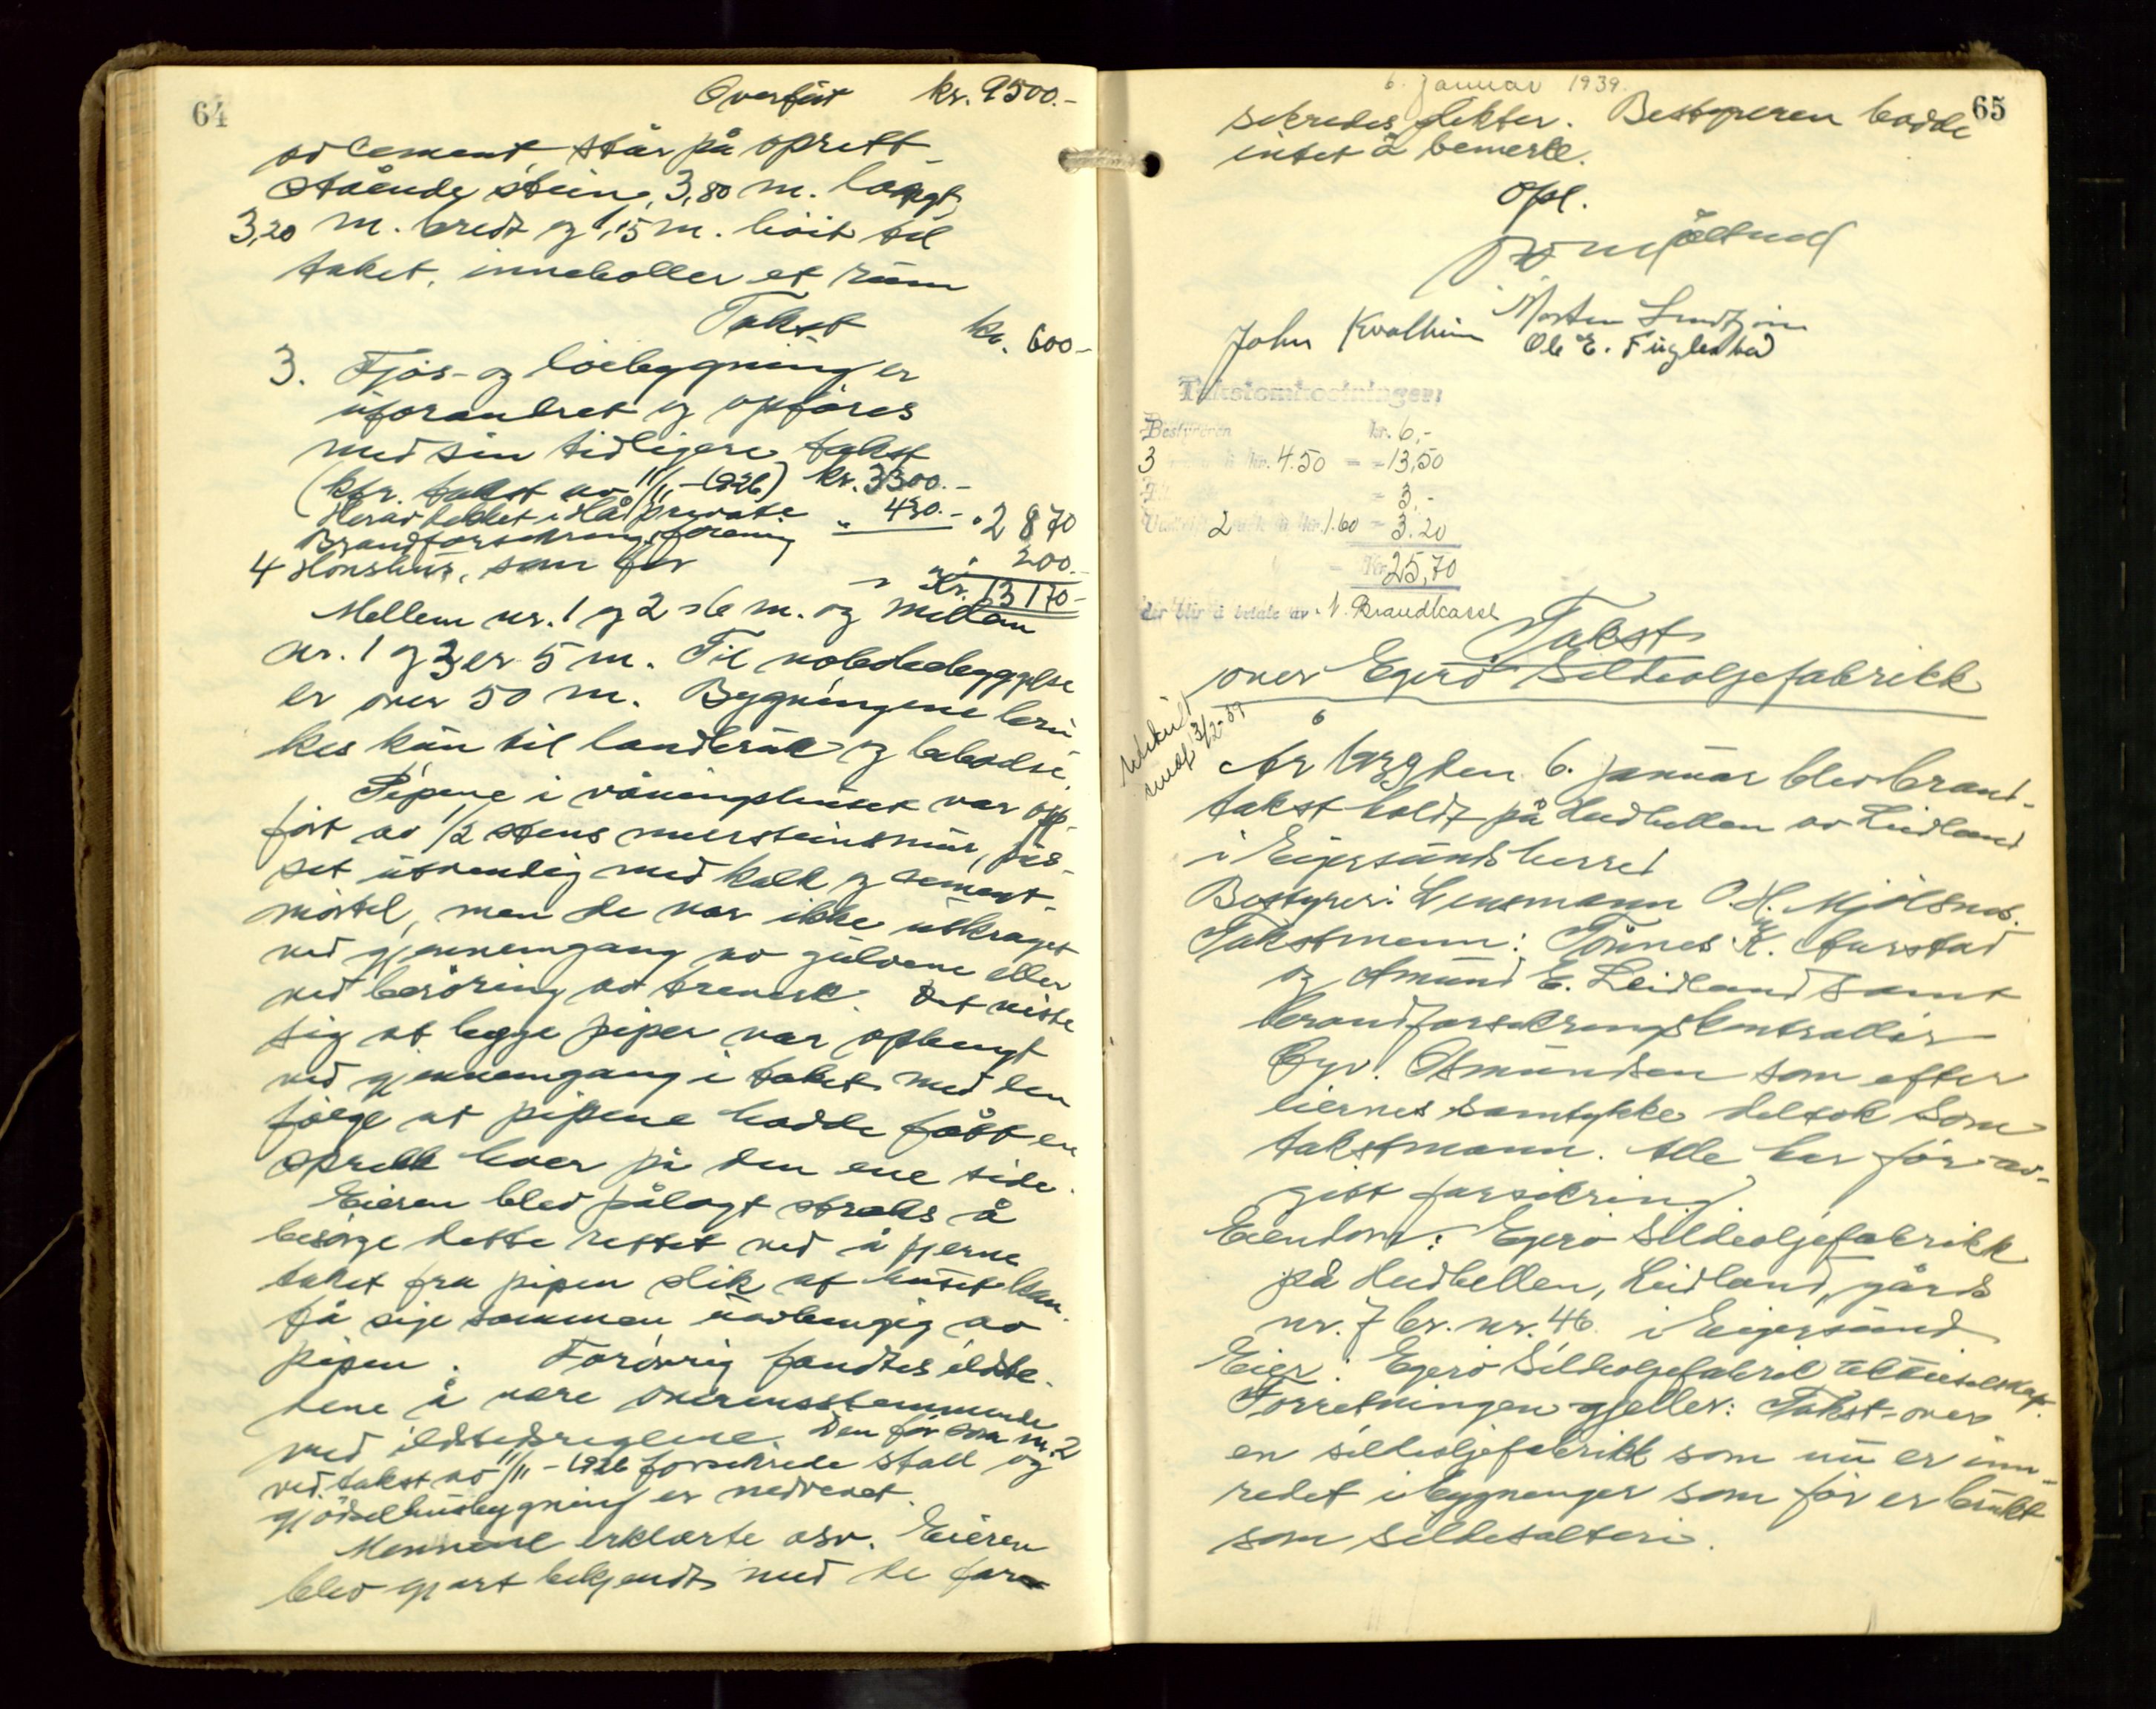 64
Overført kr. 9500.-
av cement, står på oprett-
stående steine, 3,80 m. langt,
3,20 m. bredt og 1,15 m. höit til
taket, inneholler et rüm
Takst kr. 600-
3. Fjös- og löebygning er
üforandret og opföres
med sin tidligere takst
(kfr. takst av 11/11-1926) kr. 3300.-
Herav dekket i Hå private " 430.- " 2870
Brandforsikringsforening
4 Hönshüs, som för " " 200.-
Kr. 13170-
Mellem nr. 1 og 2 16 m. og mellan
nr. 1 og 3 er 5 m. Til nabobebyggelse
er over 50 m. Bygningene brü-
kes kün til landbrük og beboelse.
Pipene i våningshüset var op-
fört av 1/2 stens mursteinsmür, püs-
set ütvendig med kalk og sement-
mörtel, men de var ikke ütkraget
ved gjennemgang av gülvene eller
ved beröring av treverk. Det viste
sig at begge piper var ophengt
ved gjennemgang i taket med den
fölge at pipene hadde fått en
sprekk hver på den ene side.
Eieren blev pålagt straks å
besörge dette rettet ved å fjerne
taket fra pipen slik at hüset kan
få sige sammen üavhengig av
pipen. Forövrig fandtes ildste-
dene å være overensstemmende
med ildstedsreglene. Den för som nr. 2
ved takst av 11/11-1926 forsikrede stall og
gjödselhüsbygning er nedrevet.
Mennene erklærte osv. Eieren
blev gjort bekjendt med de for-
6. januar 1939.
65
sikredes plikter. Bestyreren hadde
intet å bemerke.
Opl.
John Kvalheim Morten
Ole E. Fuglestad
Takstomkostninger:
Bestyreren kr. 6,-
3 kr. 4.50 = - 13,50
= 3,-
Utskrift 2 ark à kr. 1.60 = 3.20
= Kr. 25,70
der blir å betale av N. Brandkasse
Takst
over Egerö Sildeoljefabrikk
Utskrift
send 13/2-39
År 1939 den 6. januar blev brand-
takst holdt på Hudhellen av Leidland
i Eigersünds herred
Bestyrer: Lensmann O. H. Mjölsnes.
Takstmenn: Tönnes K. Aurstad
og Amünd E. Leidland samt
brandforsikringskontrollör
Osmündsen som efter
eiernes samtykke deltok som
takstmann. Alle har för av-
gitt forsikring
Eiendom: Egerö Sildeoljefabrikk
på Hudhellen, Leidland, gårds
nr. 7 br. nr. 46 i Eigersünd
Eier: Egerö Sildeoljefabrik aktieselskap.
Forretningen gjeller: Takst over
en sildeoljefabrikk som nü er inn-
redet i bygninger som för er brükt
som sildesalteri.